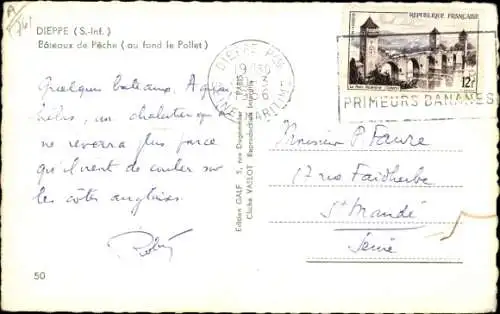 DIEPPE (S.-Inf.)
Bateaux de Pêche (au fond le Pollet)
Quelques bateaux. A quai
hélas, un chalutier qu'on
ne reverra plus parce
qu'il vient de couler sur
les côtes anglaises.
50
Edition GALF, 5, rue
Cliché VASLOT Reproduction Interdite
DIEPPE
SEINE MARITIME
REPUBLIQUE FRANÇAISE
12F
PRIMEURS BANANES
Monsieur P. Faure
17 rue Faidherbe
St Mandé
Seine